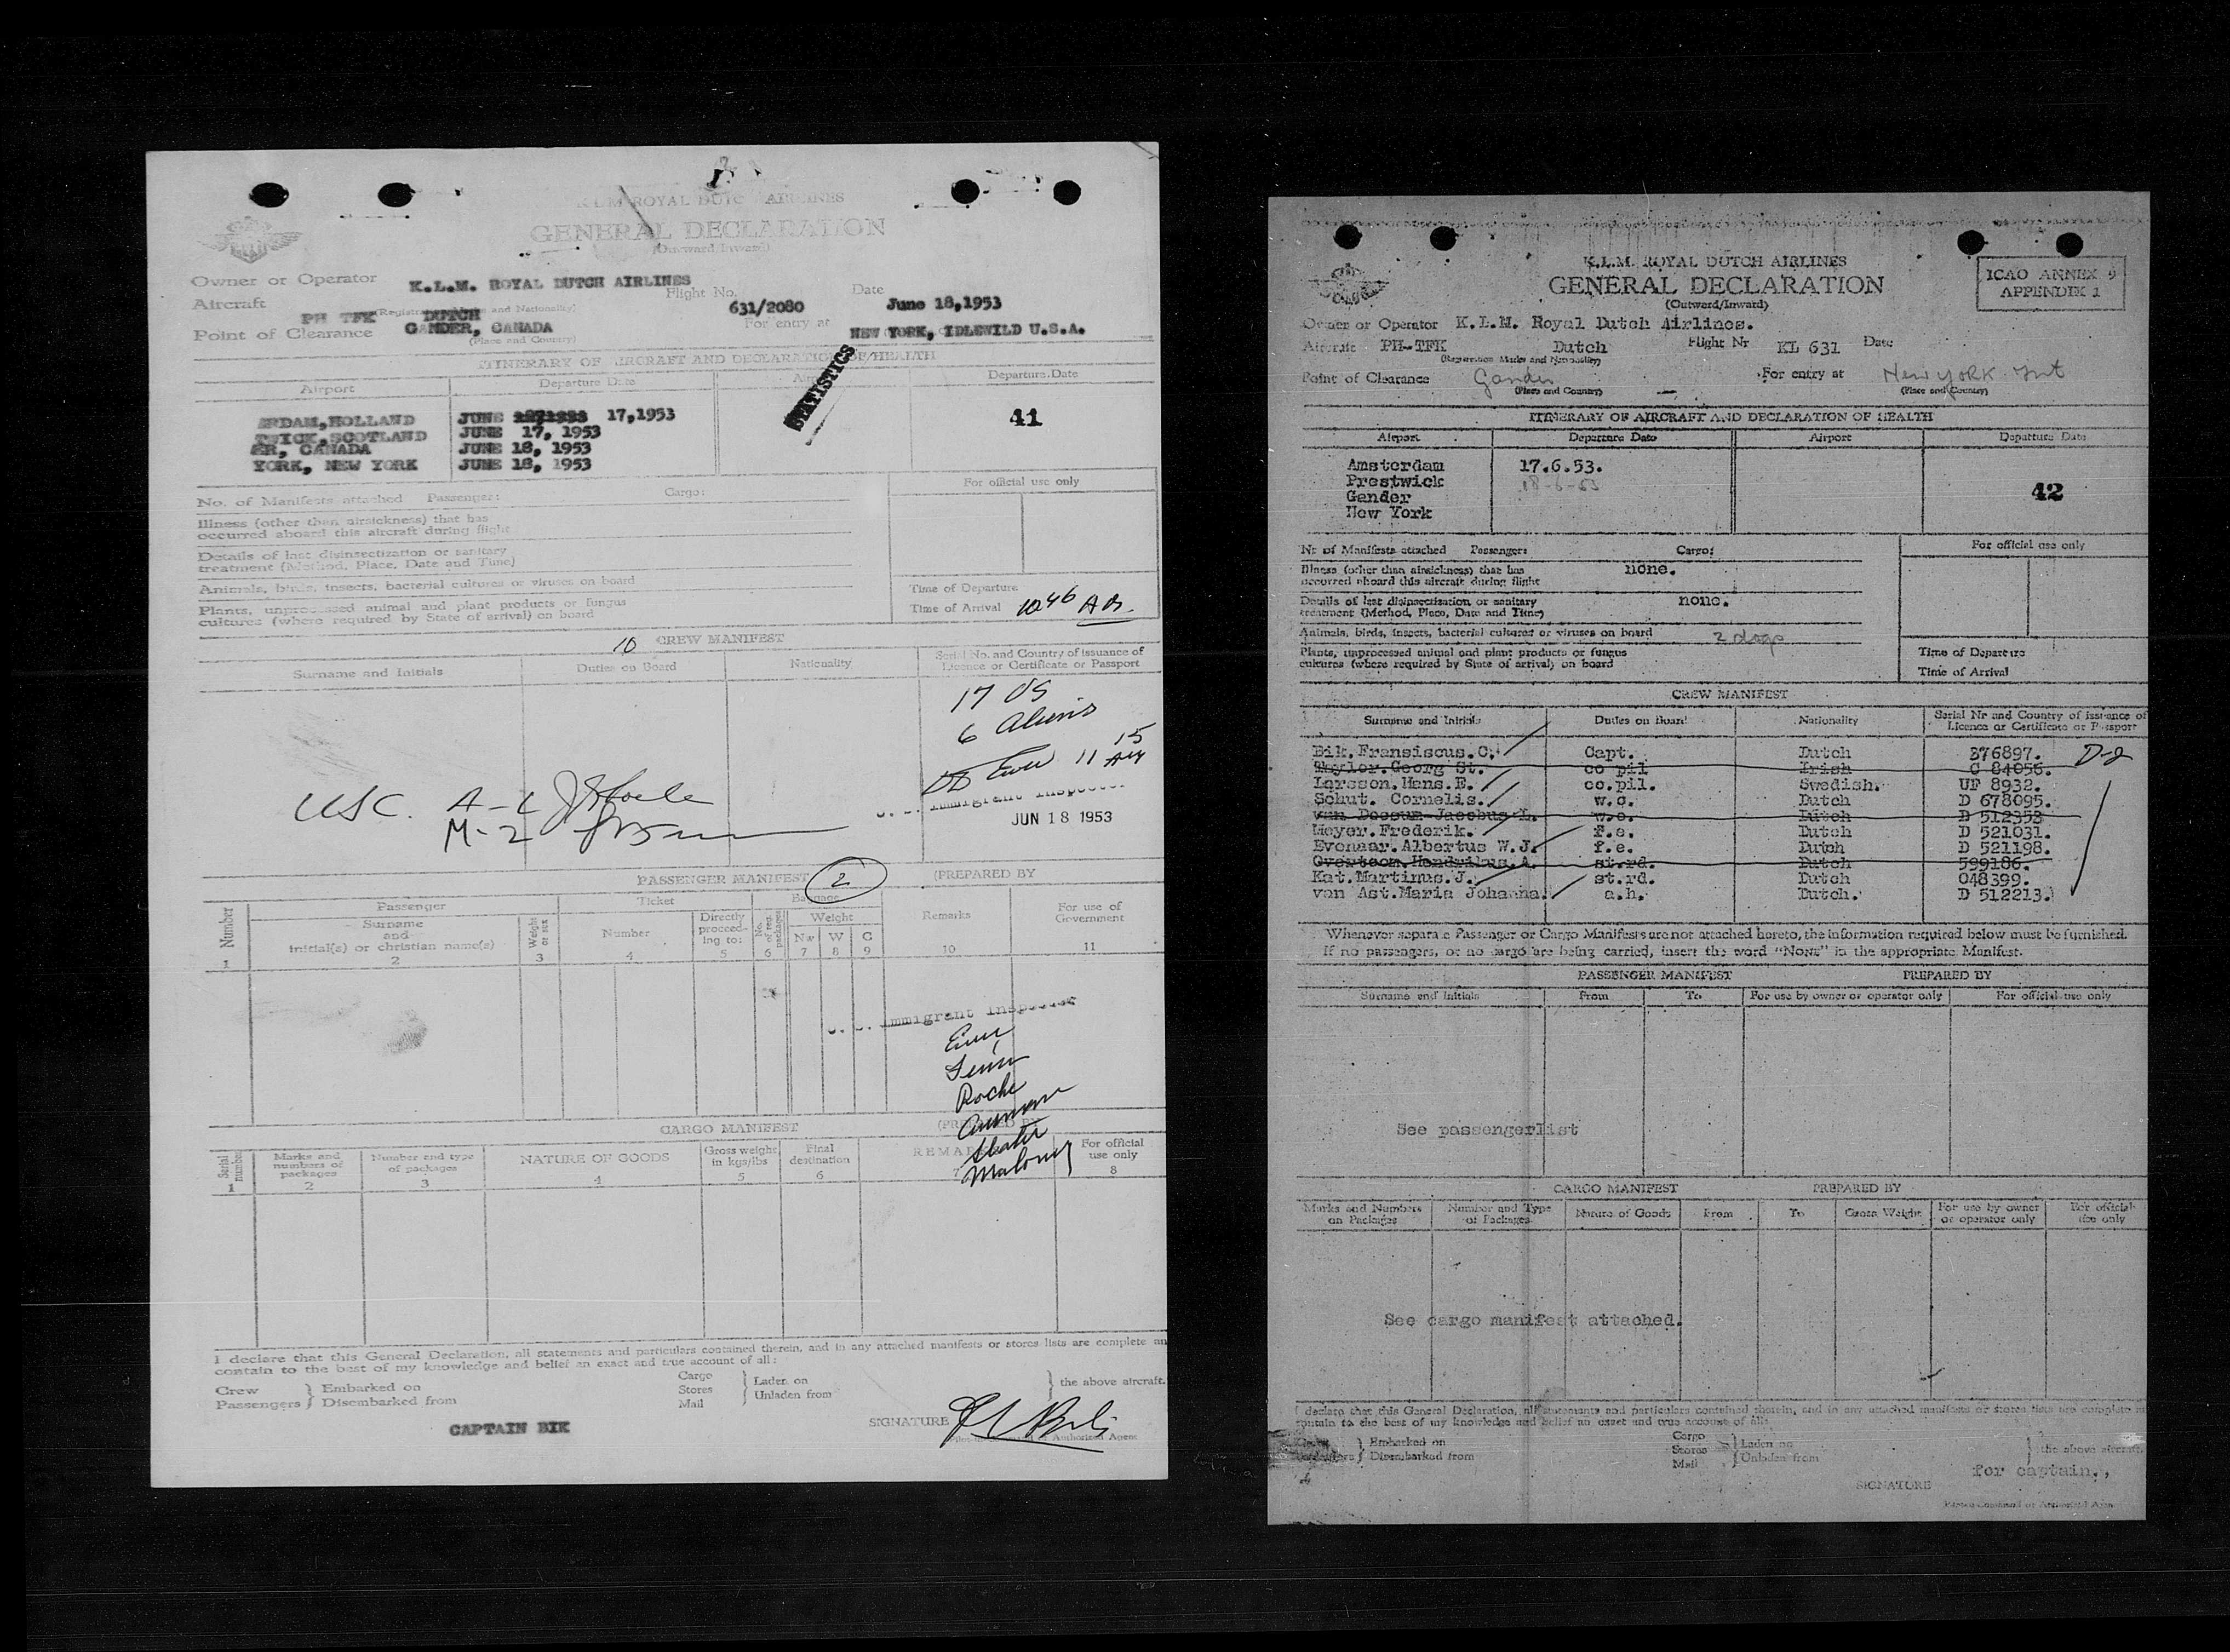 K.L.M. ROYAL DUTCH AIRLINES
GENERAL DECLARATION
(Outward/Inward)
Owner or Operator K.L.M. ROYAL DUTCH AIRLINES
Aircraft PH TFK DUTCH Flight No. 631/2080 Date June 18,1953
Point of Clearance GANDER, CANADA For entry at NEW YORK, IDLEWILD U.S.A.
(Place and Country)
STATISTICS
ITINERARY OF AIRCRAFT AND DECLARATION OF HEALTH
Airport Departure Date Airport Departure Date
ERDAM,HOLLAND JUNE 17,1953 41
TWICK,SCOTLAND JUNE 17, 1953
ER, CANADA JUNE 18, 1953
YORK, NEW YORK JUNE 18, 1953
No. of Manifests attached Passenger: Cargo: For official use only
Illness (other than airsickness) that has
occurred aboard this aircraft during flight
Details of last disinsectization or sanitary
treatment (Method, Place, Date and Time)
Animals, birds, insects, bacterial cultures or viruses on board Time of Departure
Plants, unprocessed animal and plant products or fungus
cultures (where required by State of arrival) on board Time of Arrival 1046
10 CREW MANIFEST
Surname and Initials Duties on Board Nationality Serial No. and Country of issuance of
Licence or Certificate or Passport
17 US
6 Aliens
USC. A-L
M-2
Immigrant Inspector
JUN 18 1953
PASSENGER MANIFEST 2 (PREPARED BY
Number Passenger Ticket Baggage Remarks For use of
Government
Surname
and
initial(s) or christian name(s) Weight or sex Number Directly
proceed-
ing to: No. of reg. packages Weight
Nw W C
1 2 3 4 5 6 7 8 9 10 11
Immigrant Inspector
Roche
Maloney
CARGO MANIFEST (PREPARED BY
Serial number Marks and
numbers of
packages Number and type
of packages NATURE OF GOODS Gross weight
in kgs/lbs Final
destination REMARKS For official
use only
1 2 3 4 5 6 7 8
I declare that this General Declaration, all statements and particulars contained therein, and in any attached manifests or stores lists are complete an
contain to the best of my knowledge and belief an exact and true account of all:
Crew Embarked on Cargo Laden on the above aircraft.
Passengers Disembarked from Stores Unladen from
Mail
CAPTAIN BIK SIGNATURE
Authorized Agent
K.L.M. ROYAL DUTCH AIRLINES
GENERAL DECLARATION
(Outward/Inward)
ICAO ANNEX 9
APPENDIX 1
Owner or Operator K.L.M. Royal Dutch Airlines.
Aircraft PH-TFK Dutch Flight Nr KL 631 Date
(Registration Marks and Nationality)
Point of Clearance Gander For entry at New York Int
(Place and Country) (Place and Country)
ITINERARY OF AIRCRAFT AND DECLARATION OF HEALTH
Airport Departure Date Airport Departure Date
Amsterdam 17.6.53.
Prestwick 18-6-53 42
Gander
New York
Nr of Manifests attached Passengers Cargo: For official use only
Illness (other than airsickness) that has none.
occurred aboard this aircraft during flight
Details of last disinsectisation or sanitary none.
treatment (Method, Place, Date and Time)
Animals, birds, insects, bacterial cultures or viruses on board 2 dogs
Plants, unprocessed animal and plant products or fungus Time of Departure
cultures (where required by State of arrival) on board Time of Arrival
CREW MANIFEST
Surname and Initials Duties on Board Nationality Serial Nr and Country of issuance of
Licence or Certificate or Passport
Bik.Fransiscus.C. Capt. Dutch 376897. D-2
Taylor.Georg St. co pil Irish C 84056.
Larsson.Hans.E. co.pil. Swedish. UF 8932.
Schut. Cornelis. w.o. Dutch D 678095.
van Dossum Jacobus L. w.o. Dutch D 512353
Meyer.Frederik. f.e. Dutch D 521031.
Evenaar.Albertus W.J. f.e. Dutch D 521198.
Overtoom.Hendrikus.A. st.rd. Dutch 599186.
Kat.Martinus.J. st.rd. Dutch 048399.
van Ast.Maria Johanna. a.h. Dutch. D 512213.
Whenever separate Passenger or Cargo Manifests are not attached hereto, the information required below must be furnished.
If no passengers, or no cargo are being carried, insert the word "NONE" in the appropriate Manifest.
PASSENGER MANIFEST PREPARED BY
Surname and Initials From To For use by owner or operator only For official use only
See passengerlist
CARGO MANIFEST PREPARED BY
Marks and Numbers
on Packages Number and Type
of Packages Nature of Goods From To Gross Weight For use by owner
or operator only For official
use only
See cargo manifest attached.
I declare that this General Declaration, all statements and particulars contained therein, and in any attached manifests or stores lists are complete
contain to the best of my knowledge and belief an exact and true account of all:
Embarked on Cargo Laden on the above aircraft.
Disembarked from Stores Unladen from
Mail
for captain.,
SIGNATURE